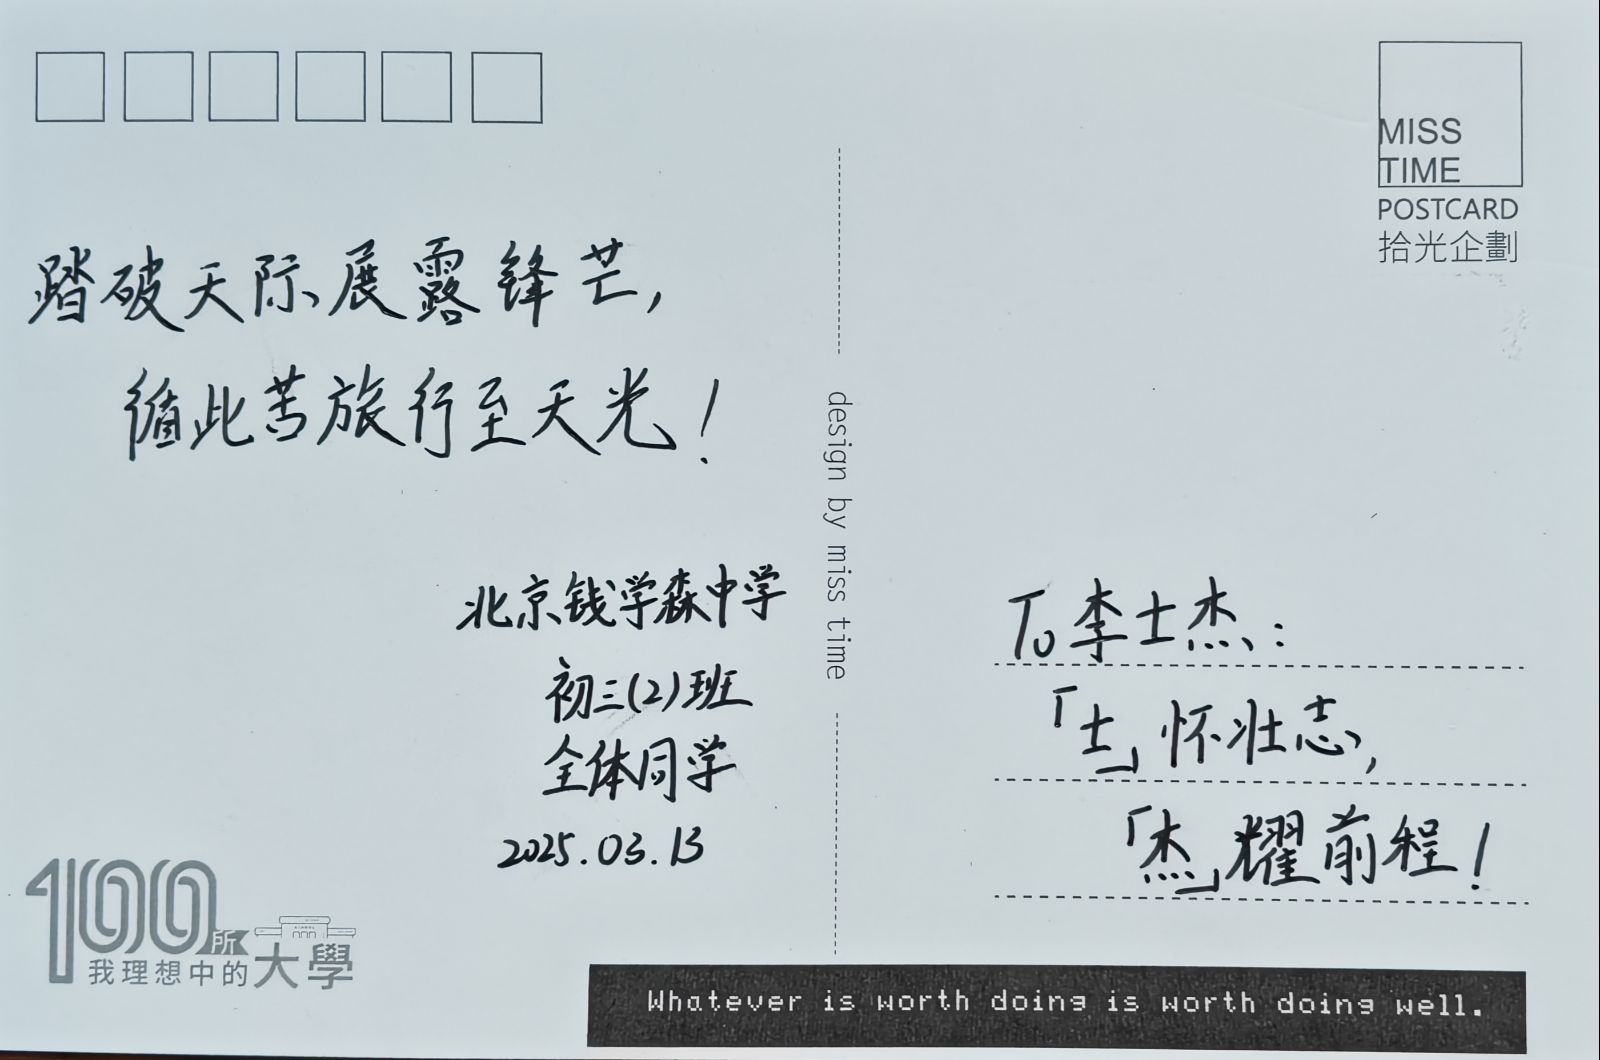 踏破天际展露锋芒,
循此苦旅行至天光!
北京钱学森中学
初三(2)班
全体同学
2025.03.13
100所
我理想中的大學
design by miss time
MISS
TIME
POSTCARD
拾光企劃
To 李士杰:
「士」怀壮志,
「杰」耀前程!
Whatever is worth doing is worth doing well.